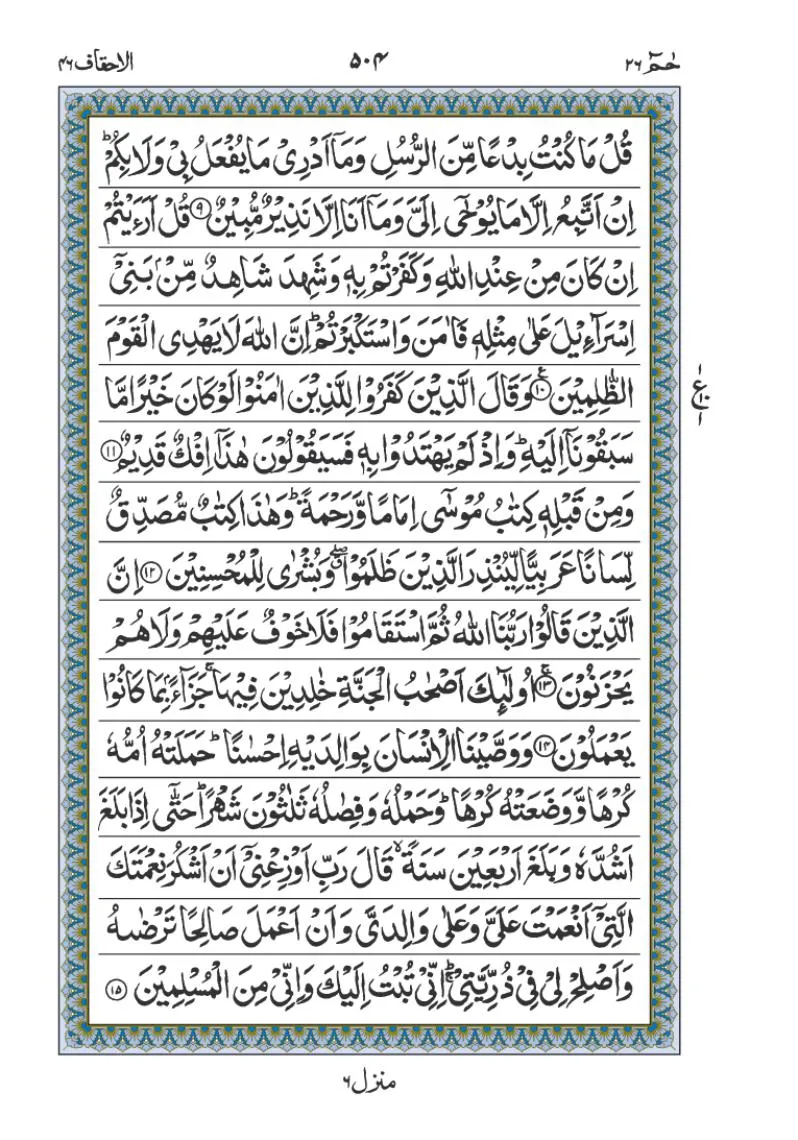 حٰمٓ ۲۶
۵۰۴
الاحقاف ۴۶
قُلْ مَا كُنْتُ بِدْعًا مِّنَ الرُّسُلِ وَمَاۤ اَدْرِیْ مَا یُفْعَلُ بِیْ وَلَا بِكُمْ ؕ
اِنْ اَتَّبِعُ اِلَّا مَا یُوْحٰۤی اِلَیَّ وَمَاۤ اَنَا اِلَّا نَذِیْرٌ مُّبِیْنٌ ﴿۹﴾ قُلْ اَرَءَیْتُمْ
اِنْ كَانَ مِنْ عِنْدِ اللّٰهِ وَكَفَرْتُمْ بِهٖ وَشَهِدَ شَاهِدٌ مِّنْۢ بَنِیْۤ
اِسْرَآءِیْلَ عَلٰی مِثْلِهٖ فَاٰمَنَ وَاسْتَكْبَرْتُمْ ؕ اِنَّ اللّٰهَ لَا یَهْدِی الْقَوْمَ
الظّٰلِمِیْنَ ﴿۱۰﴾ ع وَقَالَ الَّذِیْنَ كَفَرُوْا لِلَّذِیْنَ اٰمَنُوْا لَوْ كَانَ خَیْرًا مَّا
سَبَقُوْنَاۤ اِلَیْهِ ؕ وَاِذْ لَمْ یَهْتَدُوْا بِهٖ فَسَیَقُوْلُوْنَ هٰذَاۤ اِفْكٌ قَدِیْمٌ ﴿۱۱﴾
وَمِنْ قَبْلِهٖ كِتٰبُ مُوْسٰۤی اِمَامًا وَّرَحْمَةً ؕ وَهٰذَا كِتٰبٌ مُّصَدِّقٌ
لِّسَانًا عَرَبِیًّا لِّیُنْذِرَ الَّذِیْنَ ظَلَمُوْا ۖۗ وَبُشْرٰی لِلْمُحْسِنِیْنَ ﴿۱۲﴾ اِنَّ
الَّذِیْنَ قَالُوْا رَبُّنَا اللّٰهُ ثُمَّ اسْتَقَامُوْا فَلَا خَوْفٌ عَلَیْهِمْ وَلَا هُمْ
یَحْزَنُوْنَ ﴿۱۳﴾ اُولٰٓئِكَ اَصْحٰبُ الْجَنَّةِ خٰلِدِیْنَ فِیْهَا ۚ جَزَآءًۢ بِمَا كَانُوْا
یَعْمَلُوْنَ ﴿۱۴﴾ وَوَصَّیْنَا الْاِنْسَانَ بِوَالِدَیْهِ اِحْسٰنًا ؕ حَمَلَتْهُ اُمُّهٗ
كُرْهًا وَّوَضَعَتْهُ كُرْهًا ؕ وَحَمْلُهٗ وَفِصٰلُهٗ ثَلٰثُوْنَ شَهْرًا ؕ حَتّٰۤی اِذَا بَلَغَ
اَشُدَّهٗ وَبَلَغَ اَرْبَعِیْنَ سَنَةً ۙ قَالَ رَبِّ اَوْزِعْنِیْۤ اَنْ اَشْكُرَ نِعْمَتَكَ
الَّتِیْۤ اَنْعَمْتَ عَلَیَّ وَعَلٰی وَالِدَیَّ وَاَنْ اَعْمَلَ صَالِحًا تَرْضٰىهُ
وَاَصْلِحْ لِیْ فِیْ ذُرِّیَّتِیْ ۚؕ اِنِّیْ تُبْتُ اِلَیْكَ وَاِنِّیْ مِنَ الْمُسْلِمِیْنَ ﴿۱۵﴾
منزل ۶